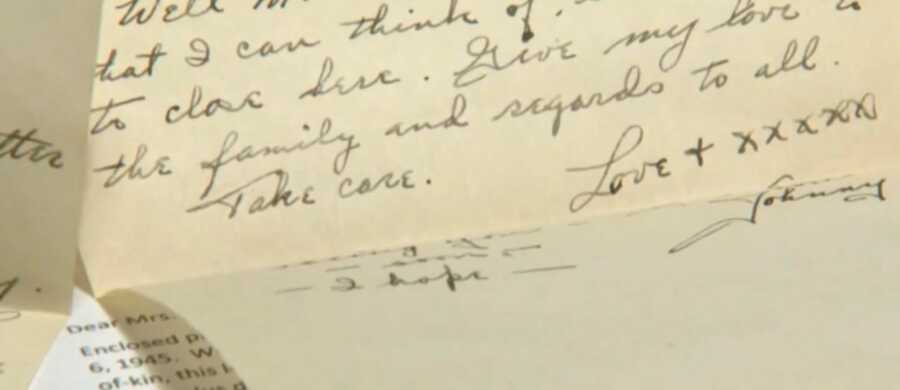 Well
that I can think of.
to close here. Give my love to
the family and regards to all.
Take care.
Love + xxxxx
Johnny
soon
— I hope —
tter
Dear Mrs.
Enclosed p
6, 1945. W
of-kin, this